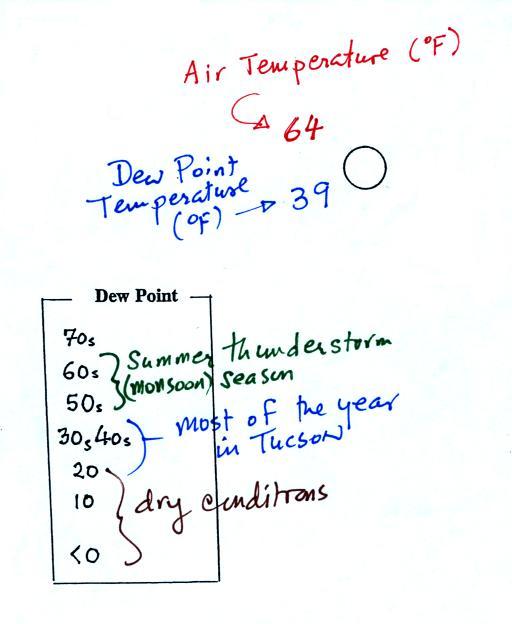 Air Temperature (°F)
64
Dew Point
Temperature
(°F) → 39
Dew Point
70s
60s
50s
Summer thunderstorm
(monsoon) season
30s40s
most of the year
in Tucson
20
10
<0
dry conditions